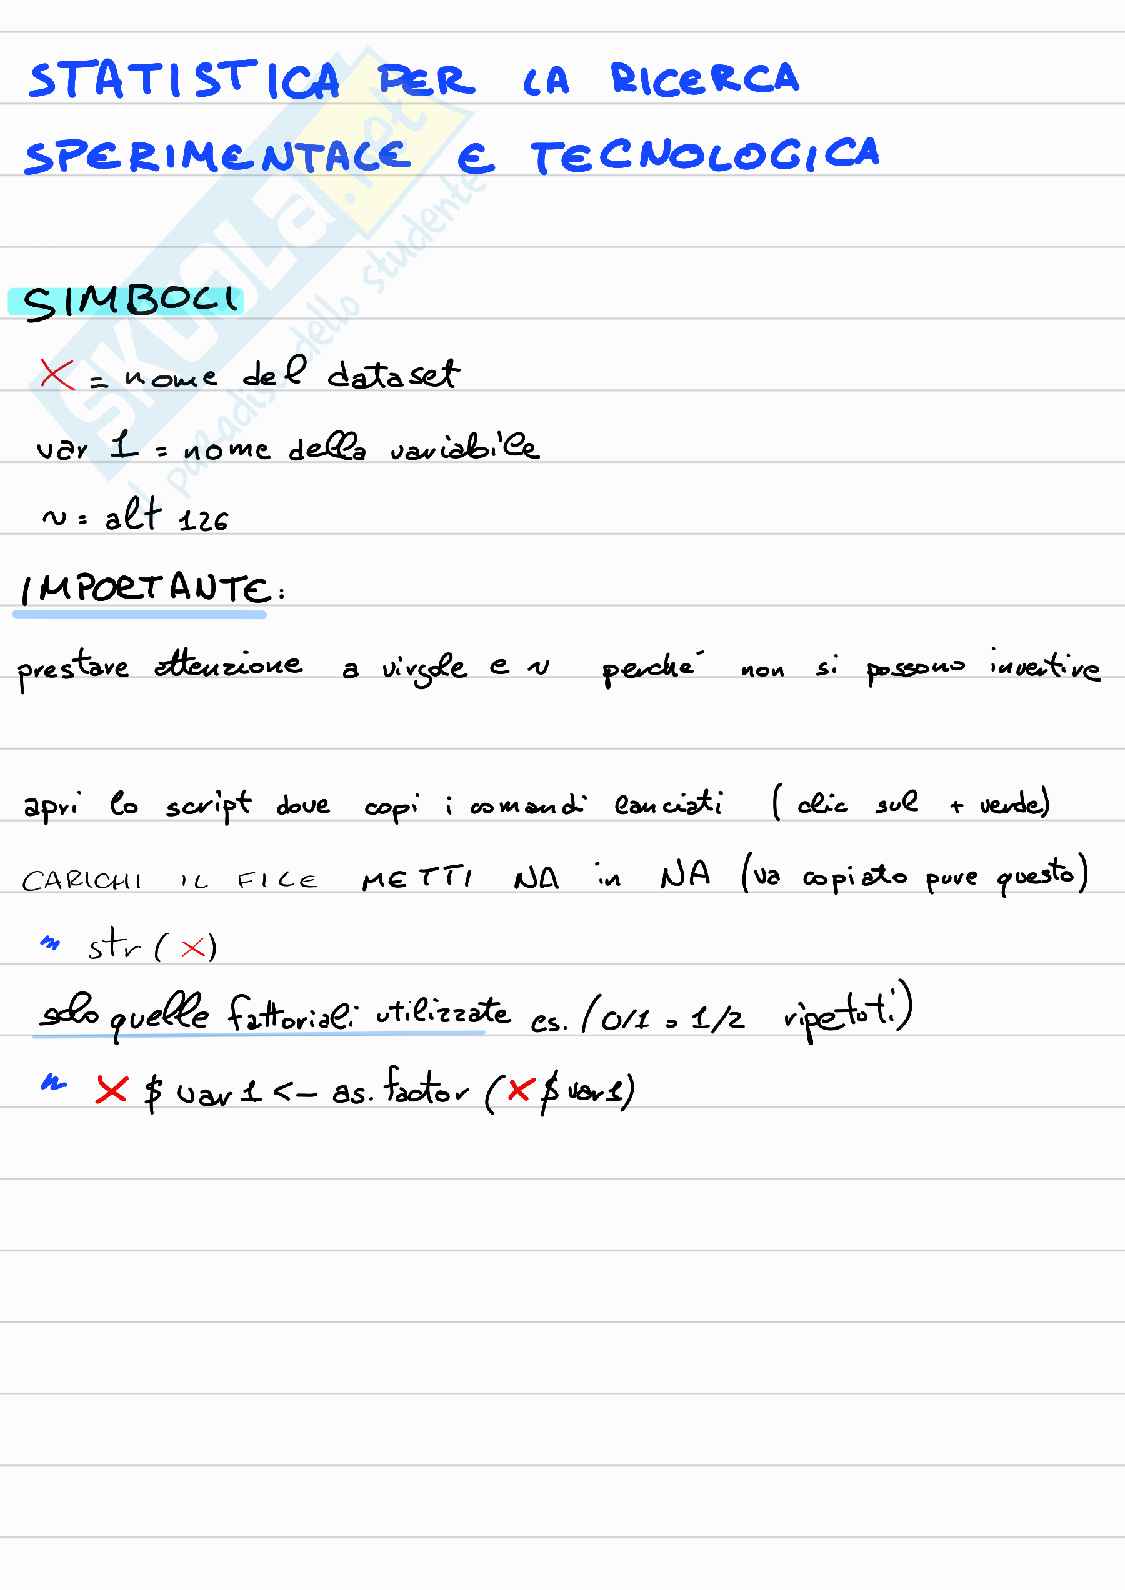 STATISTICA PER LA RICERCA
SPERIMENTALE E TECNOLOGICA
SIMBOLI
X = nome del dataset
var 1 = nome della variabile
~ = alt 126
IMPORTANTE:
prestare attenzione a virgole e ~ perché non si possono invertire
apri lo script dove copi i comandi lanciati ( clic sul + verde)
CARICHI IL FILE METTI NA in NA (va copiato pure questo)
~ str ( X )
solo quelle fattoriali utilizzate es. (0/1 o 1/2 ripetuti)
~ X $ var 1 <- as. factor ( X $ var1)
SKUOLA.net
il paradiso dello studente